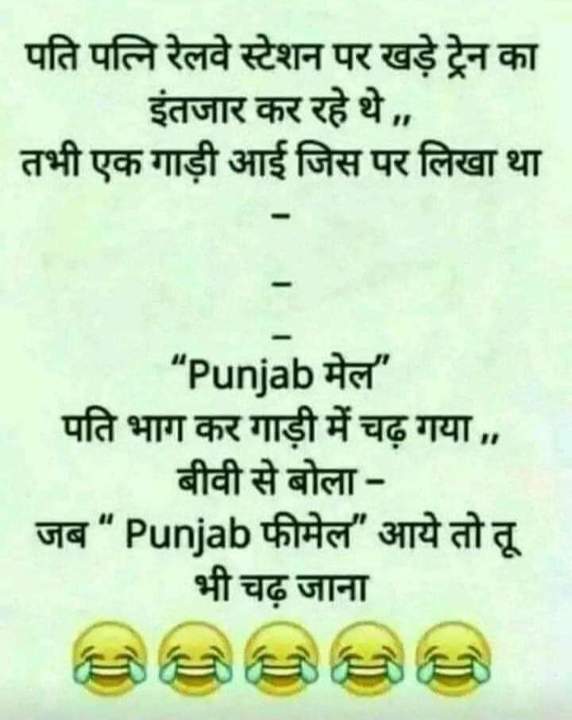 पति पत्नि रेलवे स्टेशन पर खड़े ट्रेन का
इंतजार कर रहे थे ,,
तभी एक गाड़ी आई जिस पर लिखा था
–
–
–
“Punjab मेल”
पति भाग कर गाड़ी में चढ़ गया ,,
बीवी से बोला –
जब “ Punjab फीमेल” आये तो तू
भी चढ़ जाना